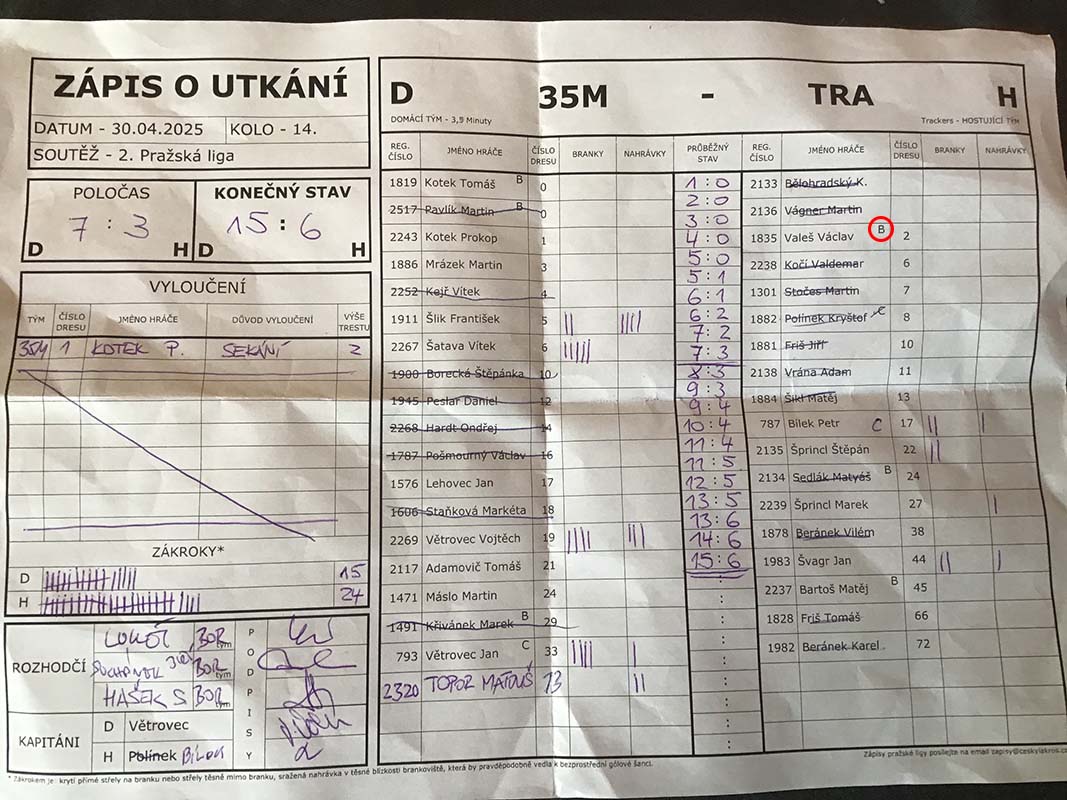 ZÁPIS O UTKÁNÍ
DATUM - 30.04.2025 KOLO - 14.
SOUTĚŽ - 2. Pražská liga
POLOČAS KONEČNÝ STAV
7 : 3 15 : 6
D H D H
VYLOUČENÍ
TÝM ČÍSLO DRESU JMÉNO HRÁČE DŮVOD VYLOUČENÍ VÝŠE TRESTU
35M 1 KOTEK P. SEKÁNÍ 2
ZÁKROKY*
D 15
H 24
ROZHODČÍ
BOR tým
BOR tým
HAŠEK S BOR tým
PODPISY
KAPITÁNI
D Větrovec
H Polínek Bílek
D 35M - TRA H
DOMÁCÍ TÝM - 3,5 Minuty Trackers - HOSTUJÍCÍ TÝM
REG. ČÍSLO JMÉNO HRÁČE ČÍSLO DRESU BRANKY NAHRÁVKY PRŮBĚŽNÝ STAV REG. ČÍSLO JMÉNO HRÁČE ČÍSLO DRESU BRANKY NAHRÁVKY
1819 Kotek Tomáš B 0
2517 Pavlík Martin B 0
2243 Kotek Prokop 1
1886 Mrázek Martin 3
2252 Kejř Vítek 4
1911 Šlik František 5 || ||||
2267 Šatava Vítek 6 |||||
1900 Borecká Štěpánka 10
1945 Peslar Daniel 12
2268 Hardt Ondřej 14
1787 Pošmourný Václav 16
1576 Lehovec Jan 17
1606 Staňková Markéta 18
2269 Větrovec Vojtěch 19 |||| ||
2117 Adamovič Tomáš 21
1471 Máslo Martin 24
1491 Křivánek Marek B 29
793 Větrovec Jan C 33 |||| |
2320 TOPOR MATOUŠ 13 ||
1 : 0
2 : 0
3 : 0
4 : 0
5 : 0
5 : 1
6 : 1
6 : 2
7 : 2
7 : 3
8 : 3
9 : 3
9 : 4
10 : 4
11 : 4
11 : 5
12 : 5
13 : 5
13 : 6
14 : 6
15 : 6
2133 Bělohradský K.
2136 Vágner Martin
1835 Valeš Václav B 2
2238 Kočí Valdemar 6
1301 Stočes Martin 7
1882 Polínek Kryštof C 8
1881 Friš Jiří 10
2138 Vrána Adam 11
1884 Šikl Matěj 13
787 Bílek Petr C 17 || |
2135 Šprincl Štěpán 22 ||
2134 Sedlák Matyáš B 24
2239 Šprincl Marek 27 |
1878 Beránek Vilém 38
1983 Švagr Jan 44 || |
2237 Bartoš Matěj B 45
1828 Friš Tomáš 66
1982 Beránek Karel 72
* Zákrokem je: krytí přímé střely na branku nebo střely těsně mimo branku, sražená nahrávka v těsné blízkosti brankoviště, která by pravděpodobně vedla k bezprostřední gólové šanci.
Zápisy pražské ligy posílejte na email zapisy@ceskylakros.c